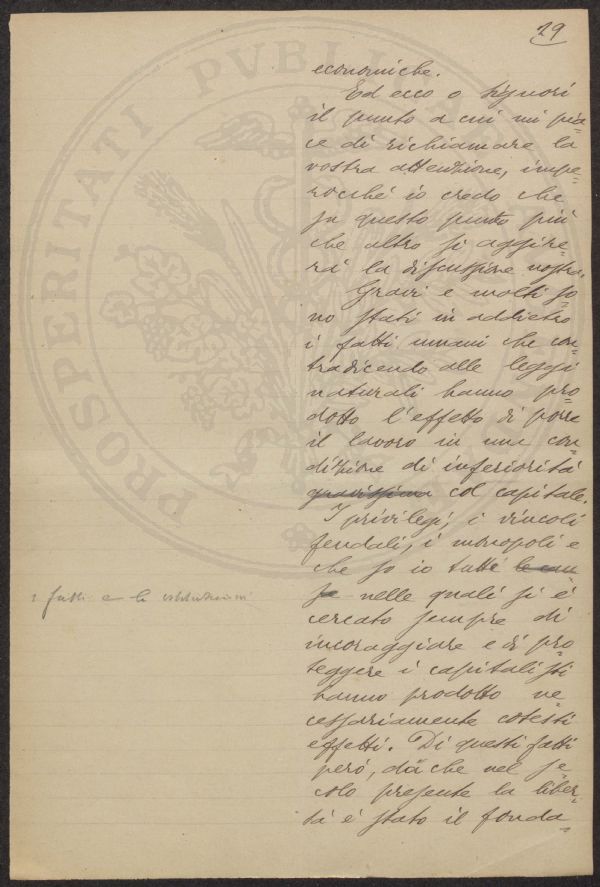 29
economiche.
Ed ecco o Signori
il punto a cui mi pia=
ce di richiamare la
vostra attenzione, impe=
rocché io credo che
su questo punto più
che altro si aggire=
rà la discussione nostra.
Gravi e molti so=
no stati in addietro
i fatti umani che con=
tradicendo alle leggi
naturali hanno pro=
dotto l'effetto di porre
il lavoro in una con=
dizione di inferiorità
gravissima col capitale.
I privilegi, i vincoli
feudali, i monopoli e
che so io tutte le cau
se nelle quali si è
i fatti e le istituzioni
cercato sempre di
incoraggiare e di pro=
teggere i capitalisti
hanno prodotto ne
cessariamente cotesti
effetti. Di questi fatti
però, dacché nel se=
colo presente la liber=
tà è stato il fonda=
PROSPERITATI PVBLICAE